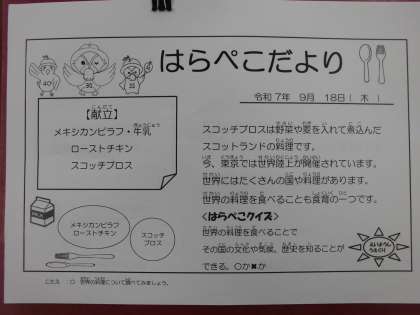 はらぺこだより
令和7年 9月 18日(木)
【献立】
メキシカンピラフ・牛乳
ローストチキン
スコッチブロス
スコッチブロスは野菜や麦を入れて煮込んだ
スコットランドの料理です。
今、東京では世界陸上が開催されています。
世界にはたくさんの国や料理があります。
世界の料理を食べることも食育の一つです。
<はらぺこクイズ>
世界の料理を食べることで
その国の文化や気候、歴史を知ることが
できる。〇か✖か
メキシカンピラフ
ローストチキン
スコッチ
ブロス
こたえ:〇 世界の料理について調べてみましょう。